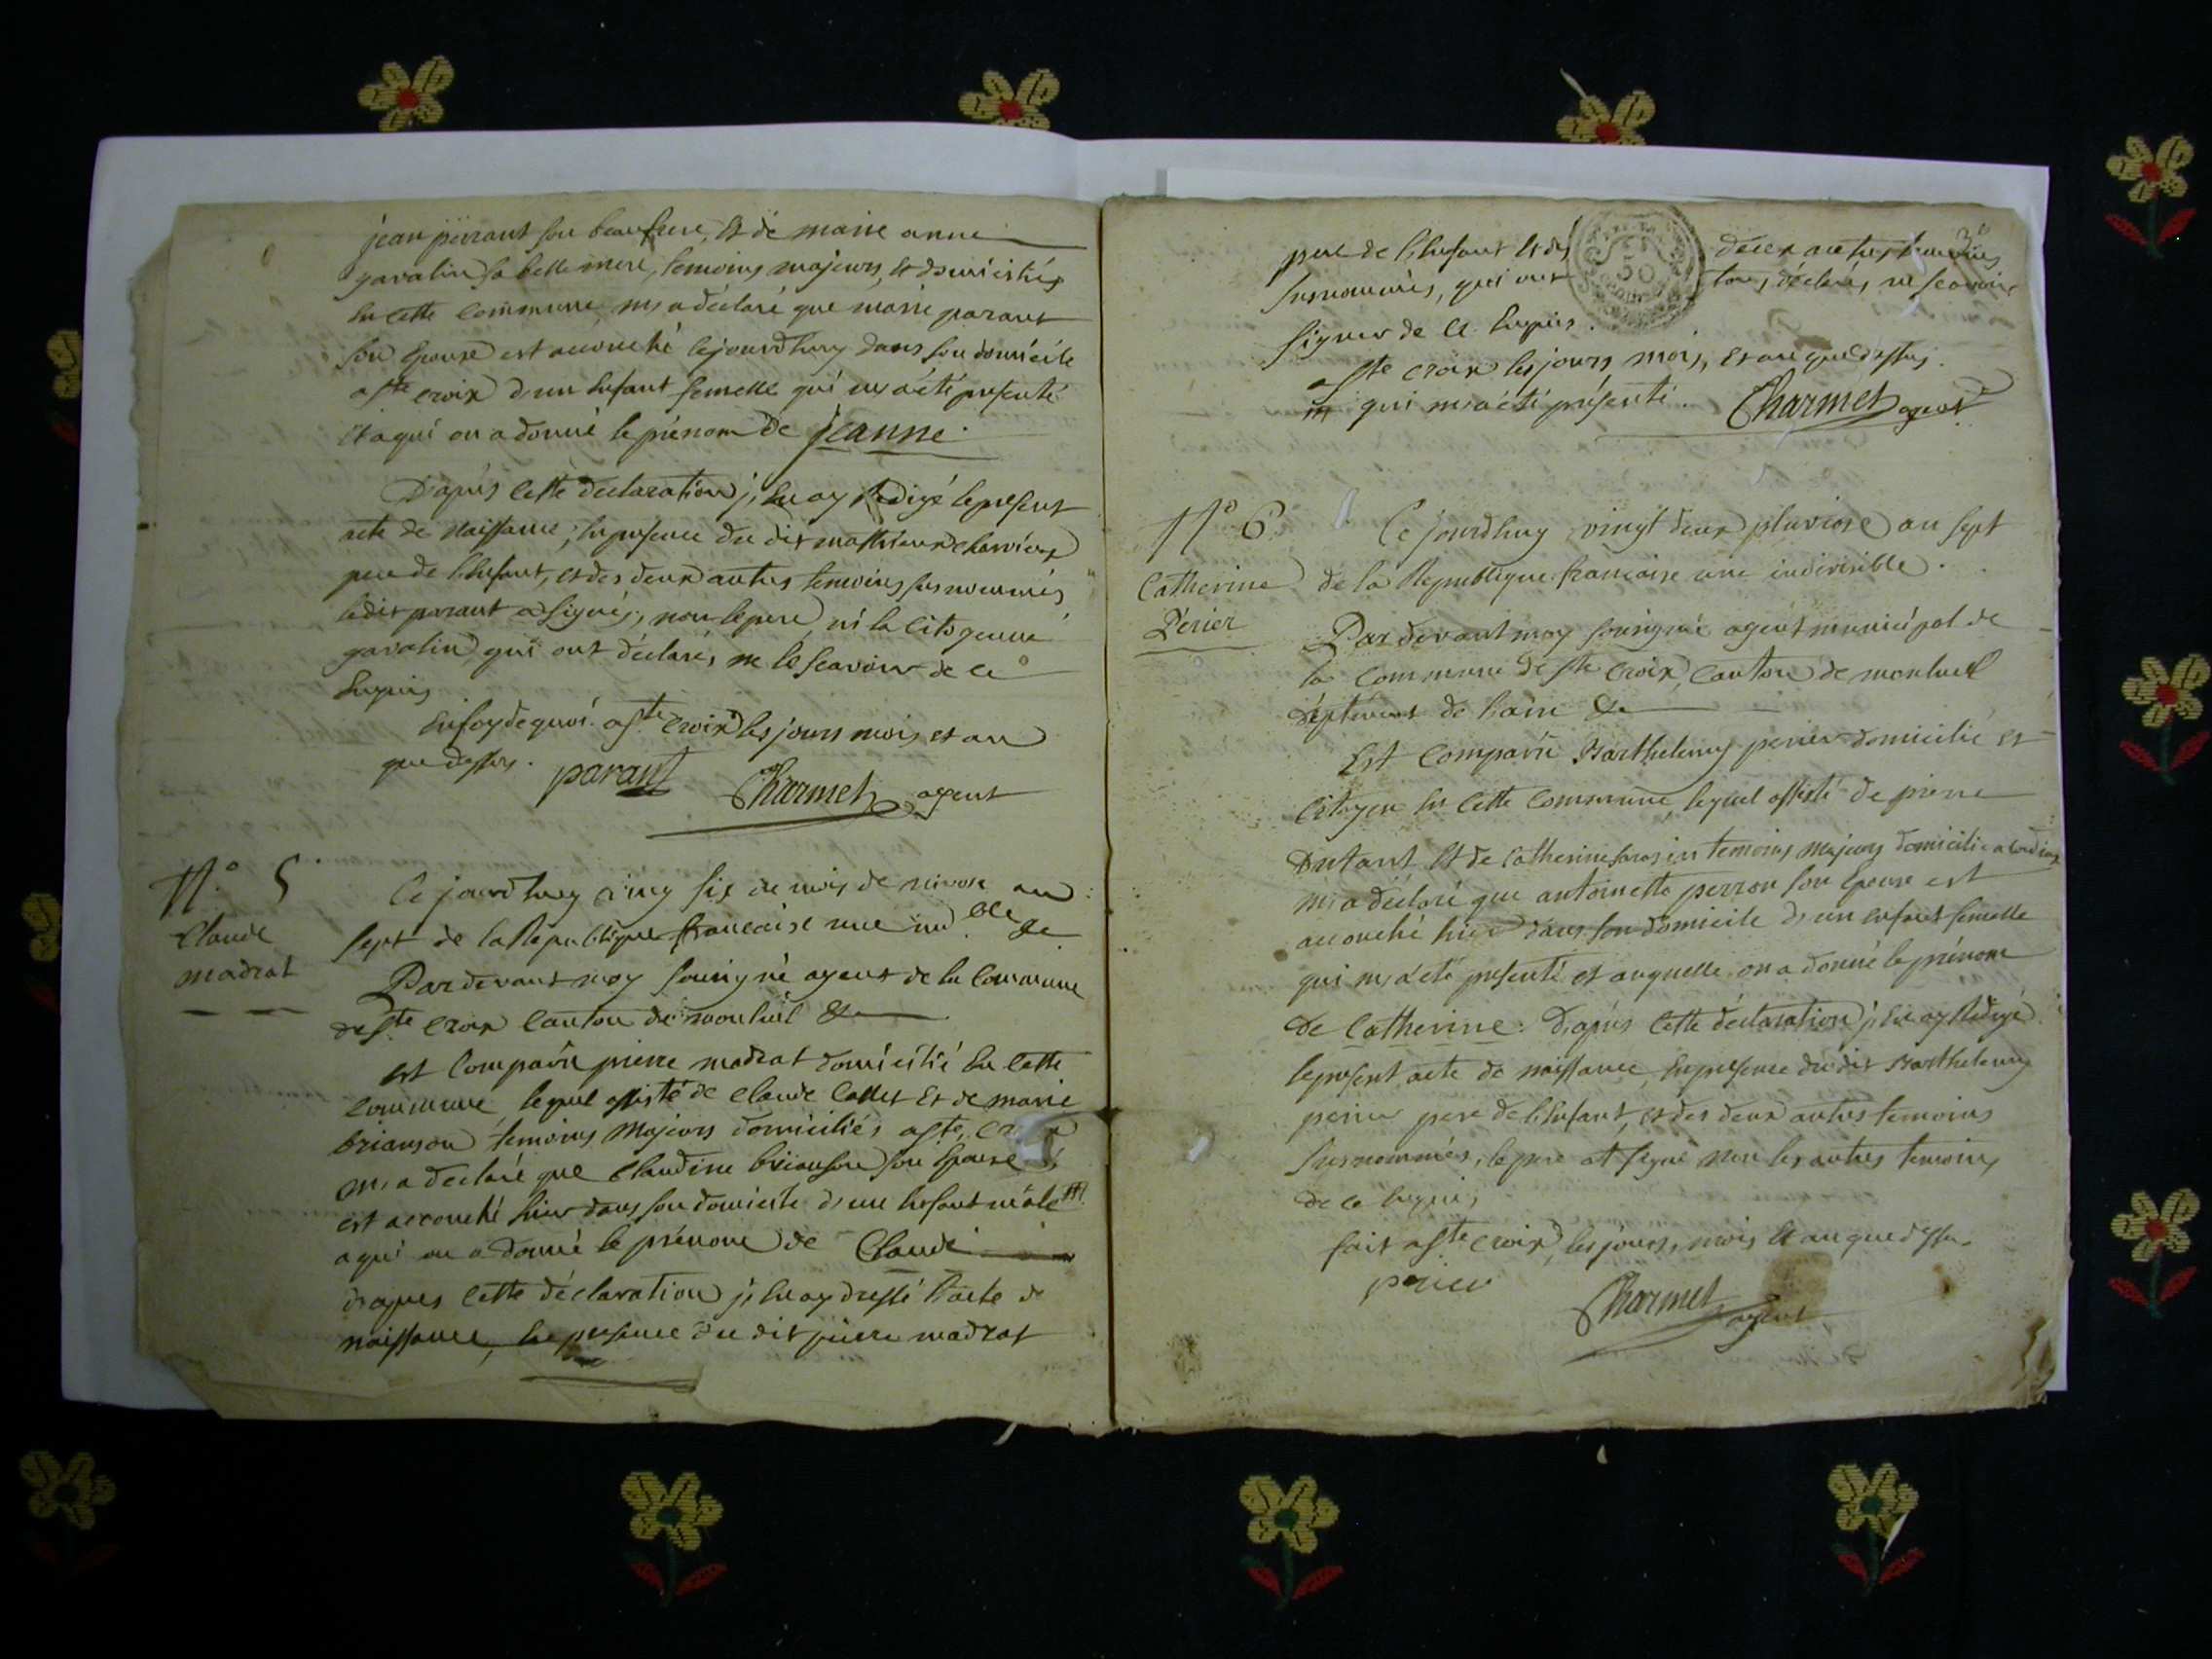 jean parrant son beaufrere, et de marie anne
gavalin sa belle mere, temoins majeurs, et domiciliés
en cette commune, m'a déclaré que marie parant
son Epouse est accouché cejourdhuy dans son domicile
a ste croix d'un Enfant femelle qui m'a été presenté
et a qui on a donné le prénom de jeanne.
D'apres cette declaration j'en ay Redigé le present
acte de Naissance, en presence du dit
pere de l'Enfant, et des deux autres temoins susnommés
ledit parant a signé, non le pere, ni la Citoyenne
gavalin qui ont déclaré, ne le scavoir de ce
Enquis
En foy de quoi. a ste Croix les jours mois et an
que dessus. parant Charmet agent
N.° 5.
Claude
madrat
Ce jourdhuy six du mois de nivose an
sept de la Republique francaise une ind.ble &c
Par devant moy sousigné agent de la Commune
de ste Croix Canton de montluel &c
est Comparu pierre madrat domicilié En cette
commune, lequel assisté de Claude Et de marie
brianson temoins Majeurs domiciliés a ste croix
m'a declaré que Claudine brianson son Epouse
est accouché hier dans son domicile d'un Enfant mâle #
a qui on a donné le prénom de Claude
d'apres cette déclaration j'en ay dressé l'acte de
naissance, En presence du dit pierre madrat
pere de l'Enfant et des deux autres temoins
susnommés, qui ont tous déclaré, ne scavoir
signer de ce Enquis.
a ste croix les jours mois, et an que dessus.
# qui m'a été présenté. Charmet agent
N° 6.
Catherine
Périer
Ce jourdhuy vingt deux pluviose an sept
de la Republique francaise une indivisible.
Par devant moy sousigné agent municipal de
la Commune de ste Croix, Canton de montluel
déptement de l'ain &c
Est Comparu Barthelemy perier domicilié et
Citoyen En Cette Commune, lequel assisté de pierre
Dutant Et de Catherine temoins majeurs domicilié
m'a déclaré que antoinette perron son Epouse est
accouché hier dans son domicile d'un enfant femelle
qui m'a été presenté et auquelle on a donné le prénom
De Catherine. D'apres Cette déclaration j'en ay Redigé
le present acte de naissance, En presence du dit Barthelemy
perier pere de l'Enfant, et des deux autres temoins
susnommés, le pere at signé non les autres temoins
de ce Enquis,
fait a ste Croix, les jours, mois Et an que dessus.
perier
Charmet agent